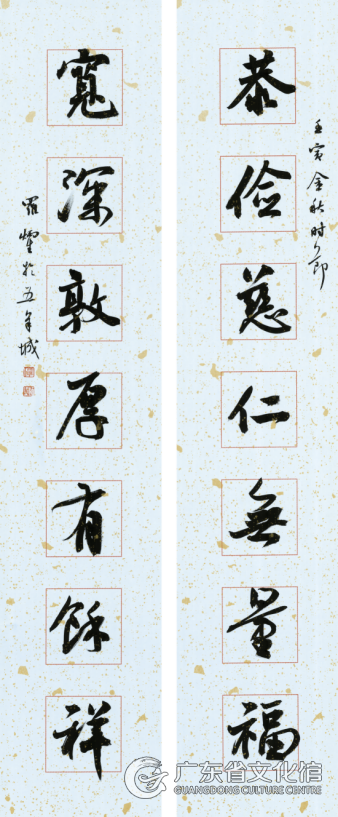 恭儉慈仁無量福
壬寅金秋时节
寬深敦厚有餘祥
羅燿於五羊城
广东省文化馆
GUANGDONG CULTURE CENTRE